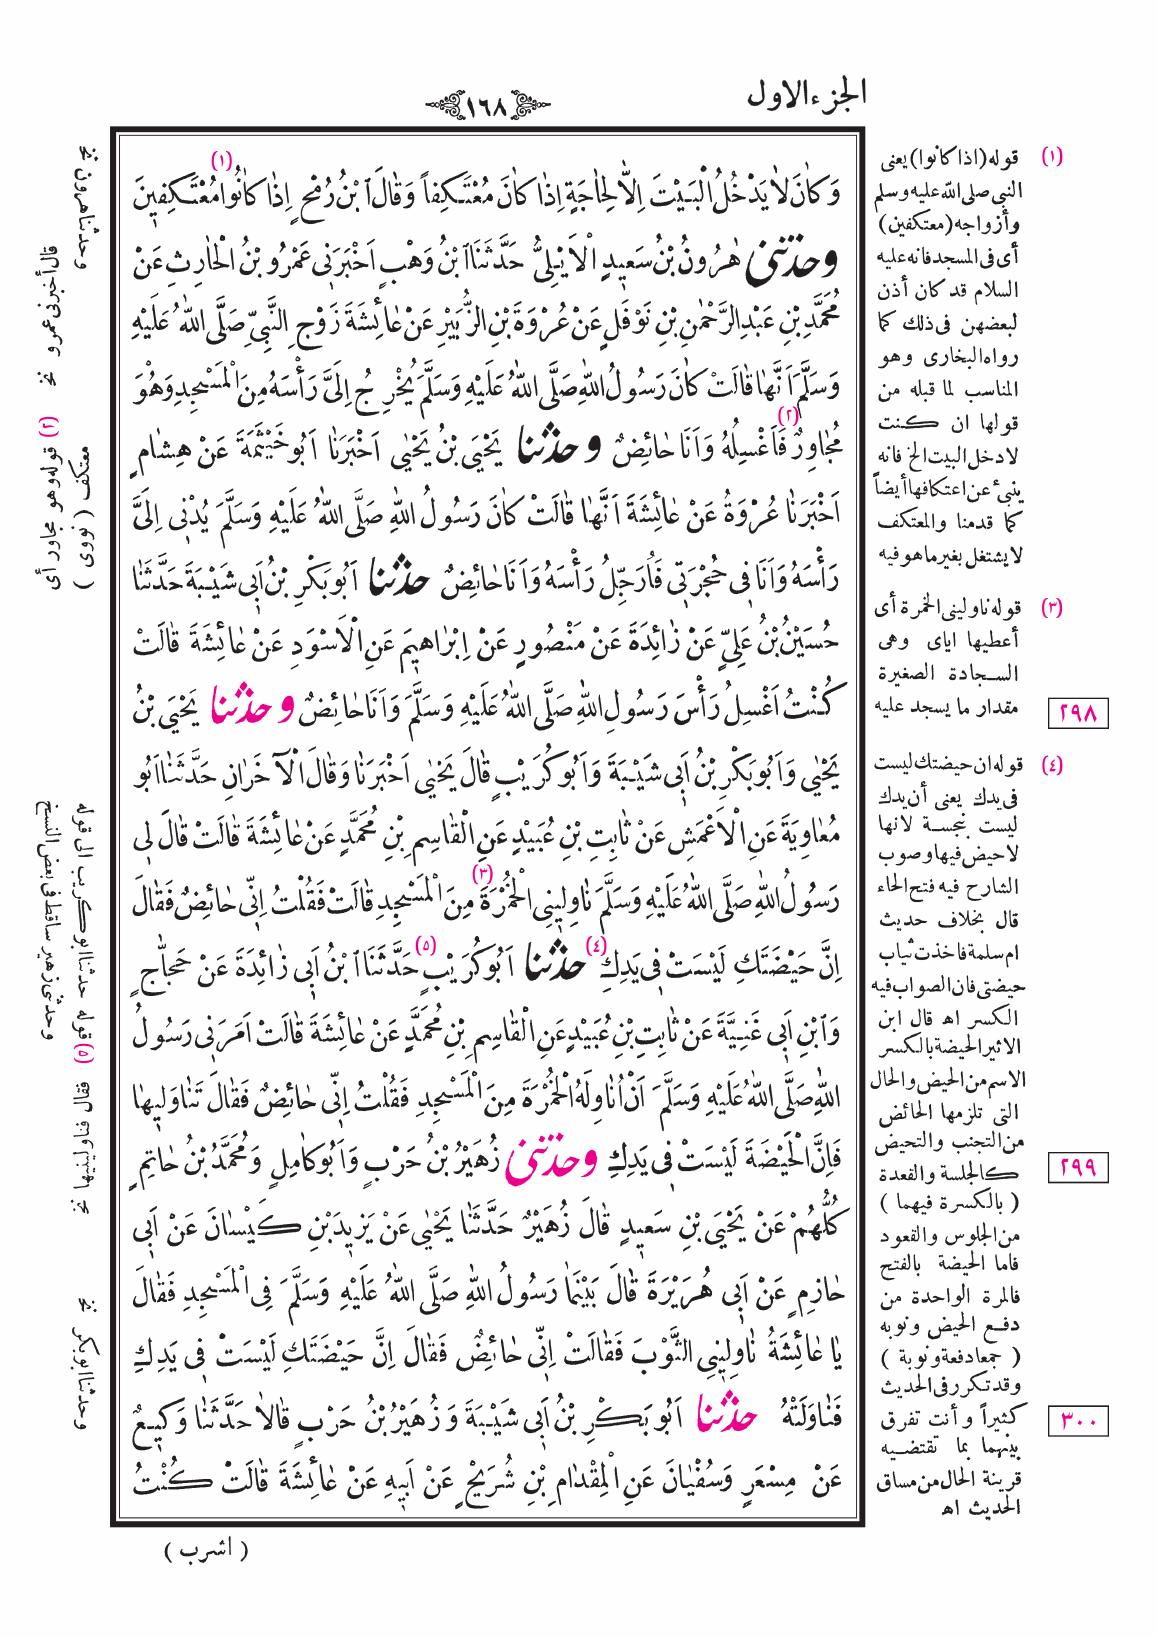 الجزء الاول
١٦٨
وَكَانَ لَا يَدْخُلُ الْبَيْتَ اِلَّا لِحَاجَةٍ اِذَا كَانَ مُعْتَكِفاً وَقَالَ ابْنُ رُمْحٍ اِذَا كَانُوا مُعْتَكِفِينَ (١)
وحَدَّثَنِى هٰرُونُ بْنُ سَعِيدٍ الْاَيْلِىُّ حَدَّثَنَا ابْنُ وَهْبٍ اَخْبَرَنِى عَمْرُو بْنُ الْحَارِثِ عَنْ
مُحَمَّدِ بْنِ عَبْدِ الرَّحْمٰنِ بْنِ نَوْفَلٍ عَنْ عُرْوَةَ بْنِ الزُّبَيْرِ عَنْ عَائِشَةَ زَوْجِ النَّبِىِّ صَلَّى اللّٰهُ عَلَيْهِ
وَسَلَّمَ اَنَّهَا قَالَتْ كَانَ رَسُولُ اللّٰهِ صَلَّى اللّٰهُ عَلَيْهِ وَسَلَّمَ يُخْرِجُ اِلَىَّ رَأْسَهُ مِنَ الْمَسْجِدِ وَهُوَ
مُجَاوِرٌ (٢) فَاَغْسِلُهُ وَاَنَا حَائِضٌ وحَدَّثَنَا يَحْيَى بْنُ يَحْيٰى اَخْبَرَنَا اَبُو خَيْثَمَةَ عَنْ هِشَامٍ
اَخْبَرَنَا عُرْوَةُ عَنْ عَائِشَةَ اَنَّهَا قَالَتْ كَانَ رَسُولُ اللّٰهِ صَلَّى اللّٰهُ عَلَيْهِ وَسَلَّمَ يُدْنِى اِلَىَّ
رَأْسَهُ وَاَنَا فِى حُجْرَتِى فَاُرَجِّلُ رَأْسَهُ وَاَنَا حَائِضٌ حَدَّثَنَا اَبُو بَكْرِ بْنُ اَبِى شَيْبَةَ حَدَّثَنَا
حُسَيْنُ بْنُ عَلِىٍّ عَنْ زَائِدَةَ عَنْ مَنْصُورٍ عَنْ اِبْرَاهِيمَ عَنِ الْاَسْوَدِ عَنْ عَائِشَةَ قَالَتْ
كُنْتُ اَغْسِلُ رَأْسَ رَسُولِ اللّٰهِ صَلَّى اللّٰهُ عَلَيْهِ وَسَلَّمَ وَاَنَا حَائِضٌ وحَدَّثَنَا يَحْيَى بْنُ
يَحْيٰى وَاَبُو بَكْرِ بْنُ اَبِى شَيْبَةَ وَاَبُو كُرَيْبٍ قَالَ يَحْيٰى اَخْبَرَنَا وَقَالَ الْآخَرَانِ حَدَّثَنَا اَبُو
مُعَاوِيَةَ عَنِ الْاَعْمَشِ عَنْ ثَابِتِ بْنِ عُبَيْدٍ عَنِ الْقَاسِمِ بْنِ مُحَمَّدٍ عَنْ عَائِشَةَ قَالَتْ قَالَ لِى
رَسُولُ اللّٰهِ صَلَّى اللّٰهُ عَلَيْهِ وَسَلَّمَ نَاوِلِينِى الْخُمْرَةَ (٣) مِنَ الْمَسْجِدِ قَالَتْ فَقُلْتُ اِنِّى حَائِضٌ فَقَالَ
اِنَّ حَيْضَتَكِ لَيْسَتْ فِى يَدِكِ (٤) حَدَّثَنَا اَبُو كُرَيْبٍ (٥) حَدَّثَنَا ابْنُ اَبِى زَائِدَةَ عَنْ حَجَّاجٍ
وَابْنِ اَبِى غَنِيَّةَ عَنْ ثَابِتِ بْنِ عُبَيْدٍ عَنِ الْقَاسِمِ بْنِ مُحَمَّدٍ عَنْ عَائِشَةَ قَالَتْ اَمَرَنِى رَسُولُ
اللّٰهِ صَلَّى اللّٰهُ عَلَيْهِ وَسَلَّمَ اَنْ اُنَاوِلَهُ الْخُمْرَةَ مِنَ الْمَسْجِدِ فَقُلْتُ اِنِّى حَائِضٌ فَقَالَ تَنَاوَلِيهَا
فَاِنَّ الْحَيْضَةَ لَيْسَتْ فِى يَدِكِ وحَدَّثَنِى زُهَيْرُ بْنُ حَرْبٍ وَاَبُو كَامِلٍ وَمُحَمَّدُ بْنُ حَاتِمٍ
كُلُّهُمْ عَنْ يَحْيَى بْنِ سَعِيدٍ قَالَ زُهَيْرٌ حَدَّثَنَا يَحْيٰى عَنْ يَزِيدَ بْنِ كَيْسَانَ عَنْ اَبِى
حَازِمٍ عَنْ اَبِى هُرَيْرَةَ قَالَ بَيْنَمَا رَسُولُ اللّٰهِ صَلَّى اللّٰهُ عَلَيْهِ وَسَلَّمَ فِى الْمَسْجِدِ فَقَالَ
يَا عَائِشَةُ نَاوِلِينِى الثَّوْبَ فَقَالَتْ اِنِّى حَائِضٌ فَقَالَ اِنَّ حَيْضَتَكِ لَيْسَتْ فِى يَدِكِ
فَنَاوَلَتْهُ حَدَّثَنَا اَبُو بَكْرِ بْنُ اَبِى شَيْبَةَ وَزُهَيْرُ بْنُ حَرْبٍ قَالَا حَدَّثَنَا وَكِيعٌ
عَنْ مِسْعَرٍ وَسُفْيَانَ عَنِ الْمِقْدَامِ بْنِ شُرَيْحٍ عَنْ اَبِيهِ عَنْ عَائِشَةَ قَالَتْ كُنْتُ
( اشرب )
(١) قوله (اذا كانوا) يعنى
النبى صلى الله عليه وسلم
وأزواجه (معتكفين)
أى فى المسجد فانه عليه
السلام قد كان أذن
لبعضهن فى ذلك كما
رواه البخارى وهو
المناسب لما قبله من
قولها ان كنت
لادخل البيت الخ فانه
ينبئ عن اعتكافها أيضاً
كما قدمنا والمعتكف
لا يشتغل بغير ما هو فيه
(٣) قوله ناولينى الخمرة أى
أعطيها اياى وهى
السجادة الصغيرة
مقدار ما يسجد عليه
٢٩٨
(٤) قوله ان حيضتك ليست
فى يدك يعنى أن يدك
ليست نجسة لانها
لا حيض فيها وصوب
الشارح فيه فتح الحاء
قال بخلاف حديث
ام سلمة فاخذت ثياب
حيضتى فان الصواب فيه
الكسر اه قال ابن
الاثير الحيضة بالكسر
الاسم من الحيض والحال
التى تلزمها الحائض
من التجنب والتحيض
٢٩٩
كالجلسة والقعدة
( بالكسرة فيهما )
من الجلوس والقعود
فاما الحيضة بالفتح
فالمرة الواحدة من
دفع الحيض ونوبه
( جمعا دفعة ونوبة )
وقد تكرر فى الحديث
كثيراً وأنت تفرق
٣٠٠
بينهما بما تقتضيه
قرينة الحال من مساق
الحديث اه
وحدثنا هرون نخ
قال أخبرنى عمرو نخ
(٢) قوله وهو مجاور أى
معتكف ( نووى )
(٥) قوله حدثنا ابو كريب الى قوله
وحدثنى زهير ساقط فى بعض النسخ
وحدثنا ابو بكر نخ